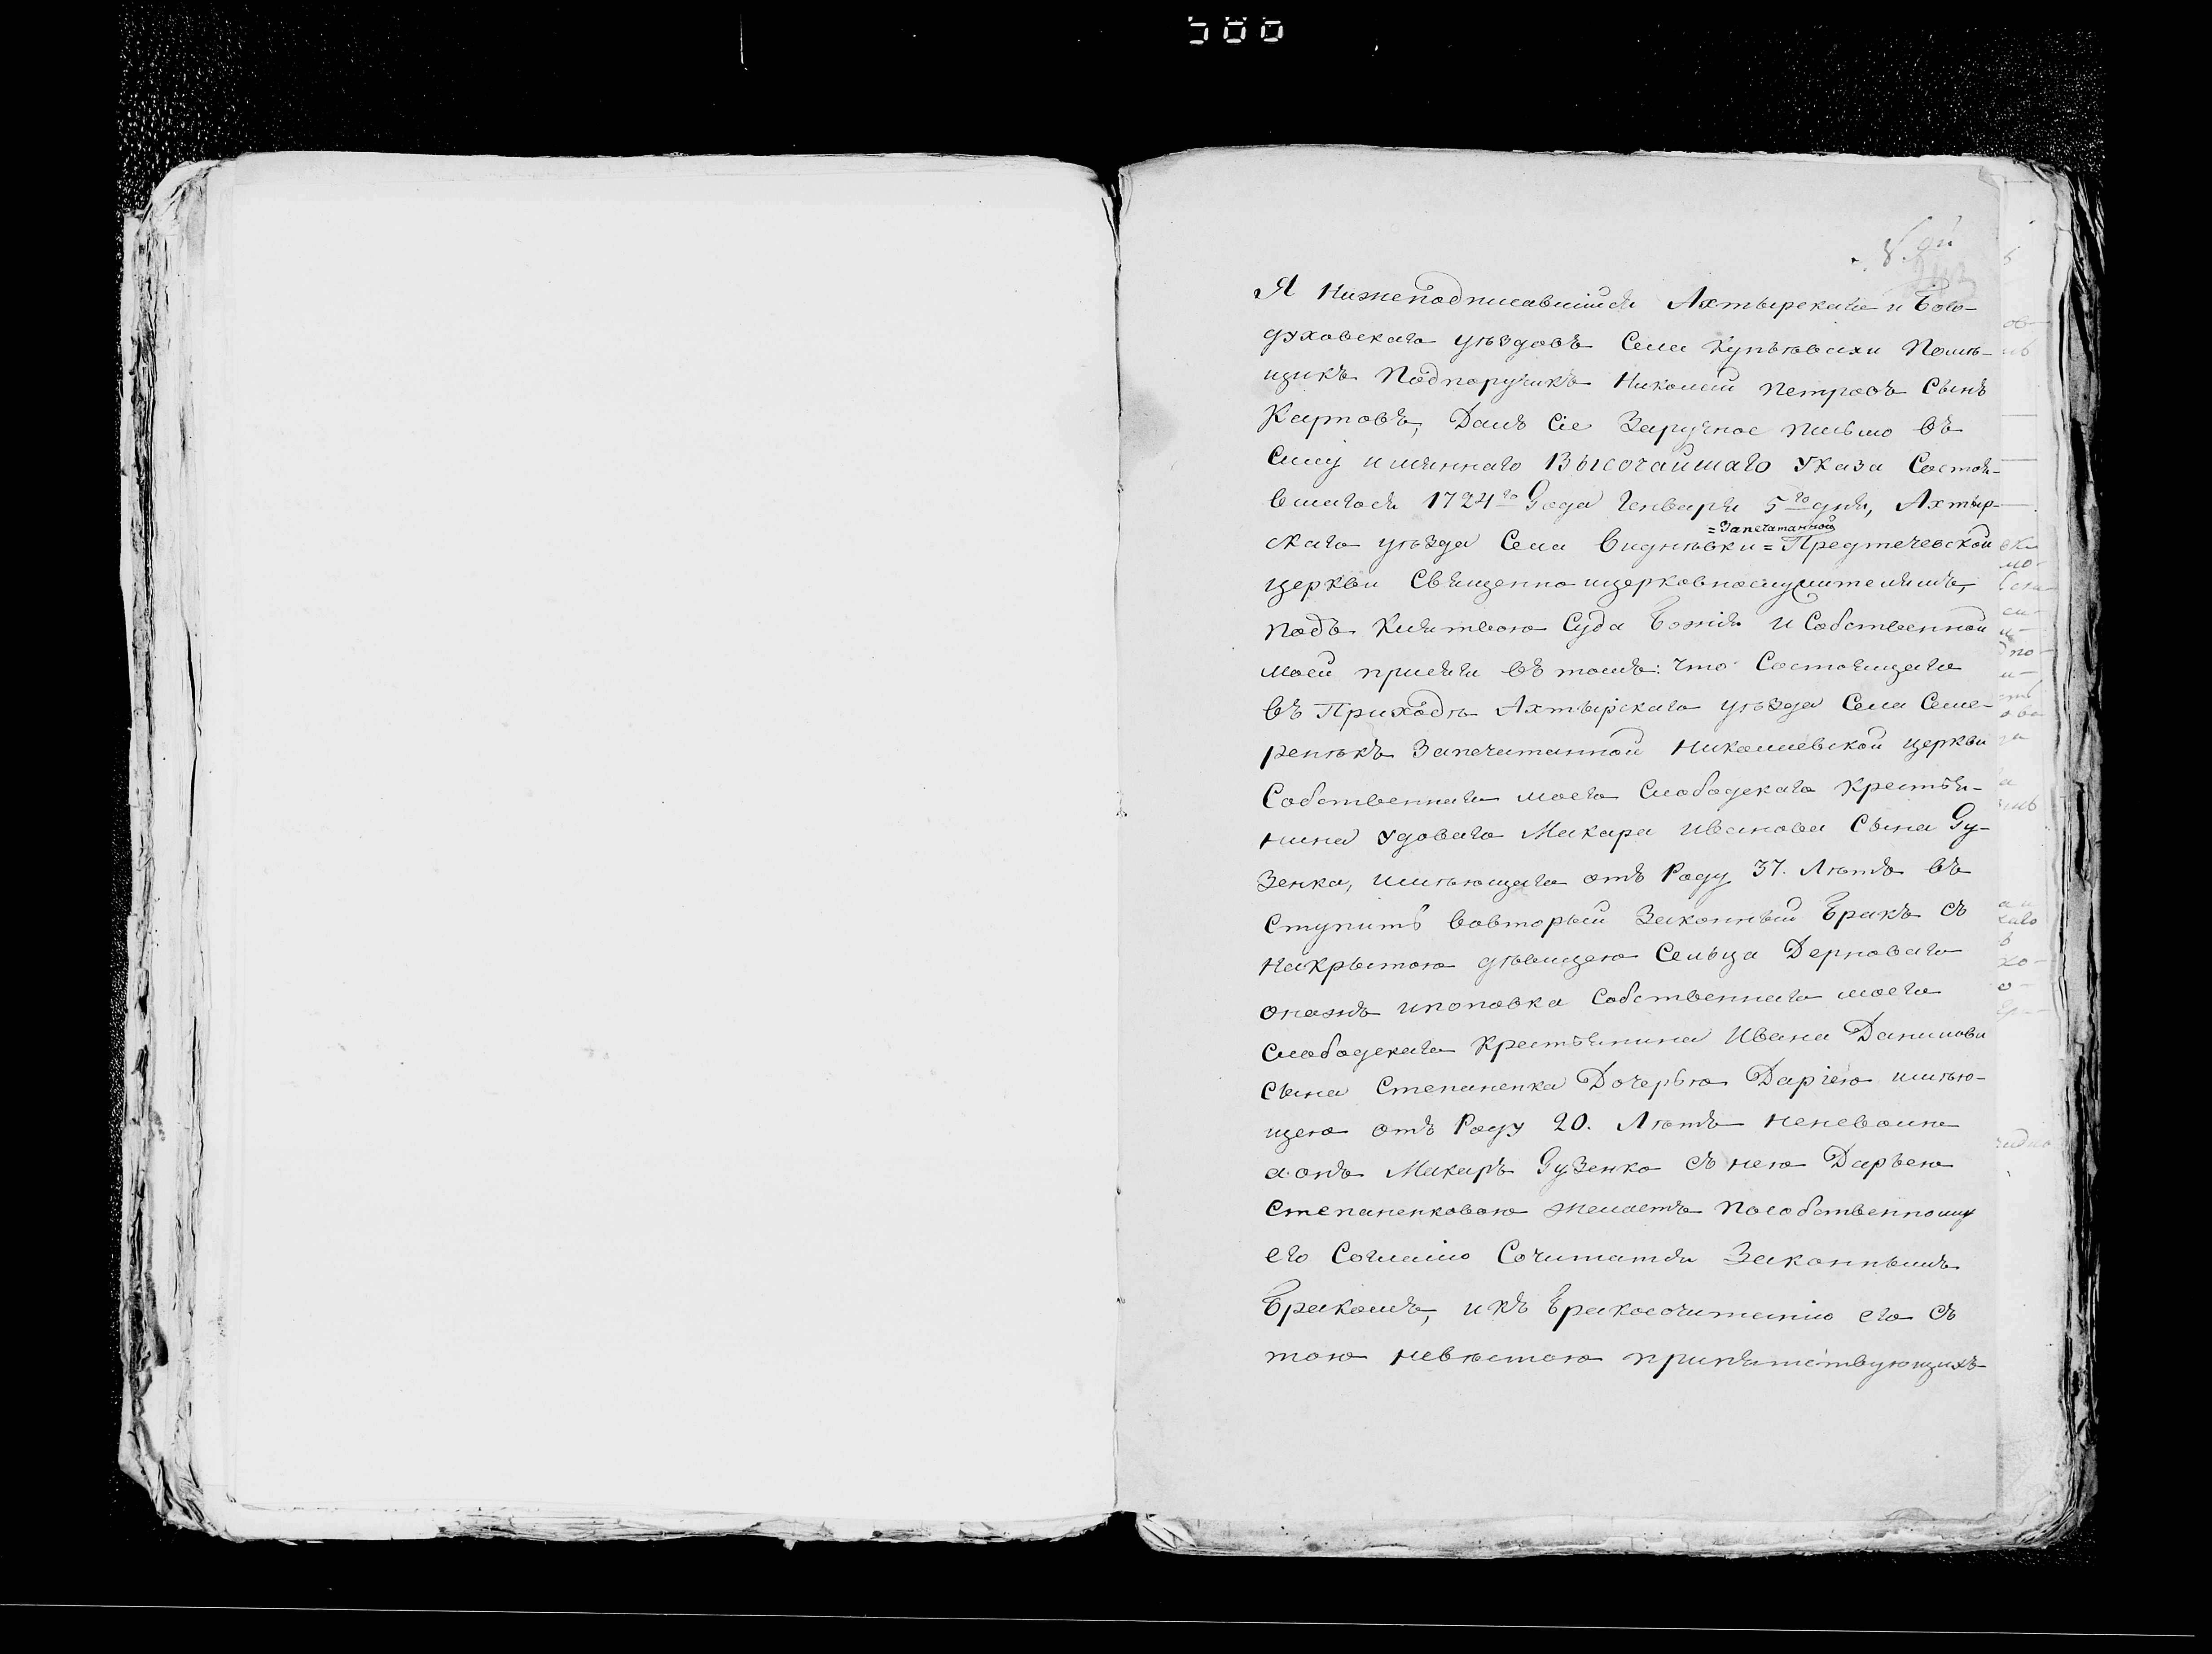 500
8.й
Я нижеподписавшійся Ахтырскаго и Бого-
духовскаго уѣздовъ Села Купѣвахи Помѣ-
щикъ Подпоручикъ Николай Петровъ Сынъ
Карповъ, Далъ Сіе Заручное письмо въ
Силу имяннаго Высочайшаго Указа Состоя-
вшагося 1724го Года Генваря 5го дня, Ахтыр-
=Запечатанной
скаго уѣзда Села Виднѣвки= Предтечевской
церкви Священно ицерковнослужителямъ,
подъ Клятвою Суда Божія и Собственной
моей присяги въ томъ: что Состоящаго
въ Приходѣ Ахтырскаго уѣзда Села Семе-
ренѣкъ Запечатанной Николаевской церкви
Собственнаго моего Слободскаго Крестья-
нина удоваго Макара Иванова Сына Гу-
Зенка, имѣющаго отъ Роду 37. Лѣтъ въ
Ступить вовторый Законный Бракъ съ
накрытою дѣвицею Сельца Дерноваго
онажъ ипоповка Собственнаго моего
Слободскаго Крестьянина Ивана Данилова
Сына Степаненка Дочерью Даріею имѣю-
щею отъ Роду 20. Лѣтъ неневолно
а онъ Макаръ Гузенко съ нею Дарьею
Степаненковою желаетъ пособственному
его Согласію Сочитатся Законнымъ
Бракомъ, икъ Бракосочитанію его съ
тою невѣстою припятствующихъ